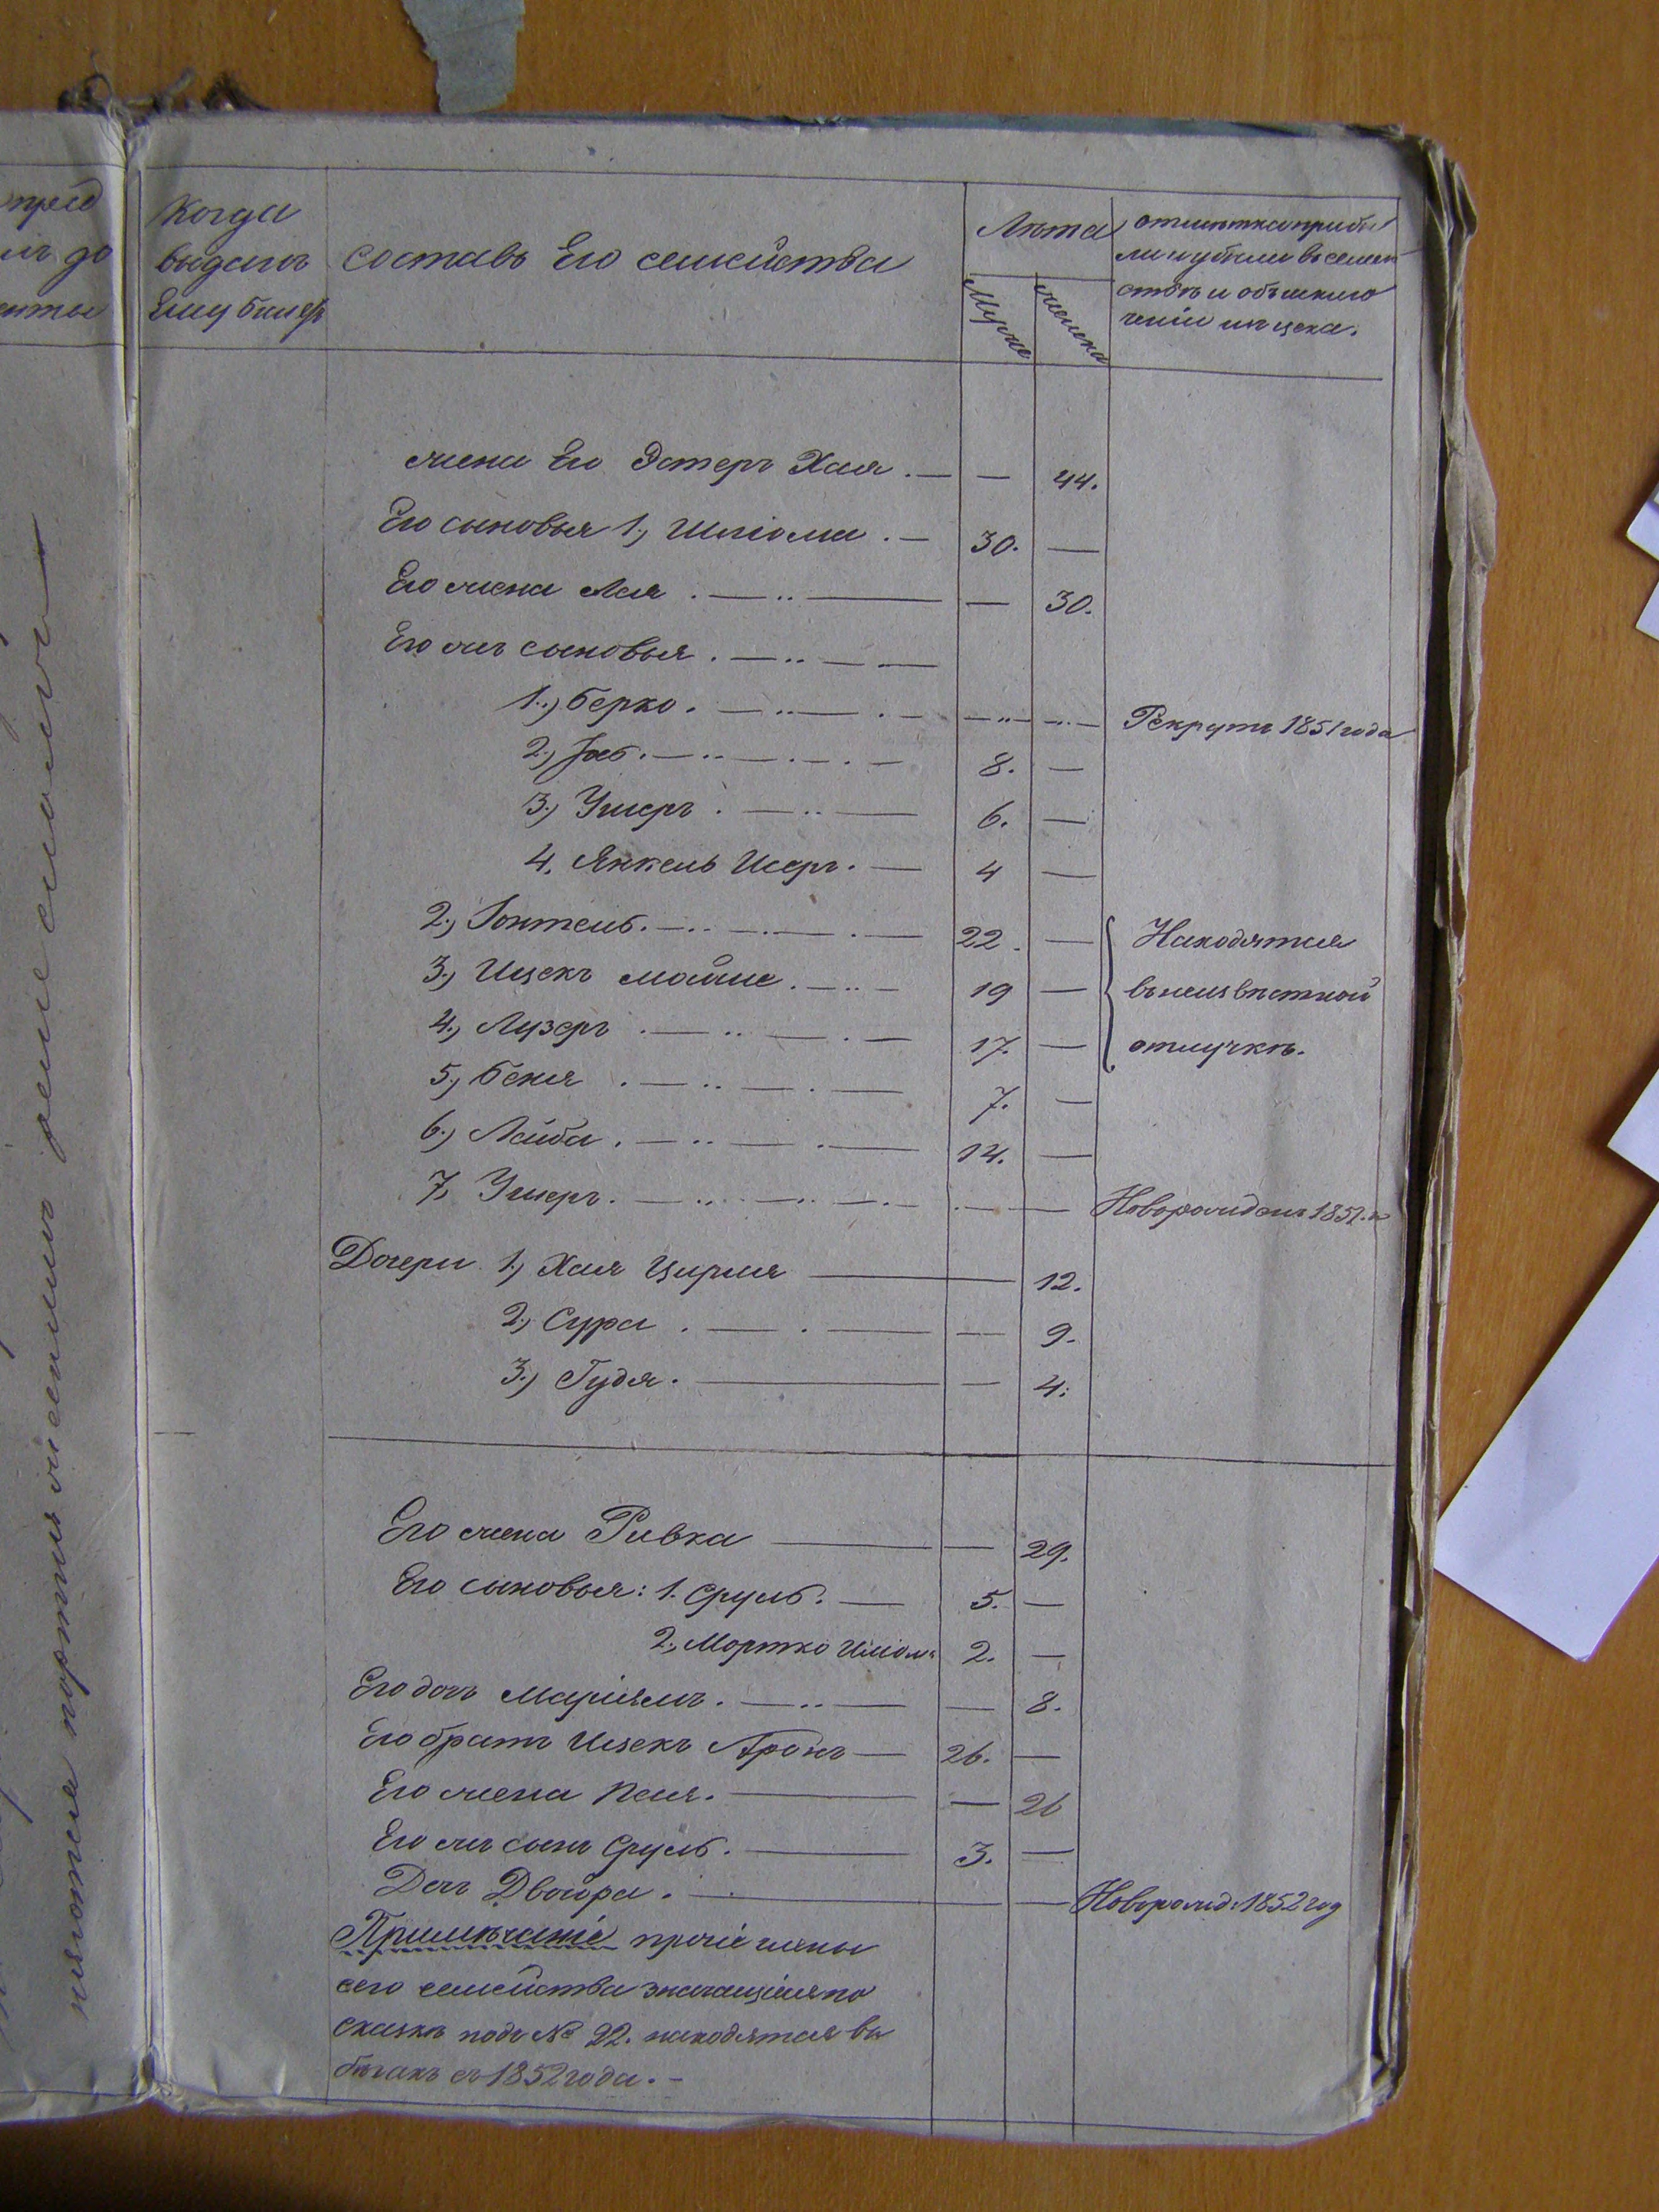 Когда
выданъ
Ему билет
Составъ Его семейства
Лѣта
Мужес
женска
отмѣтка прибы
ли и убыли въ семей
ствѣ и объ исклю
ченіи изъ цеха.
жена Его Эстеръ Хая . — — 44.
Его сыновья 1, Шліома . — 30. —
Его жена Лея . — .. — — 30.
Его же сыновья . — .. — —
1., Берко . — .. — . — — .. — — .. — Рекрутъ 1851 года
2., . — .. — . — . — 8. —
3., Ушеръ . — .. — 6. —
4, Янкель Исеръ . — 4 —
2., . — .. — . — . — 22. — Находятся
3., Ицекъ Мойше . — .. — 19 — въ неизвѣстной
4., Лузеръ . — .. — . — 17. — отлучкѣ.
5., Беня . — .. — . — 7. —
6., Лейба . — .. — . — 14. —
7, Ушеръ . — .. — .. — . — . — — Новорожденъ 1852. г
Дочери 1., Хая Цирля — 12.
2., Сура . — . — — 9.
3., Гудя . — — 4.
Его жена Ривка — — 29.
Его сыновья: 1. Сруль. — 5. —
2, Мортко Шлом: 2. —
Его дочь Маріямъ . — .. — — 8.
Его братъ Ицекъ Аронъ — 26. —
Его жена Песя . — — 26
Его же сынъ Сруль . — 3. —
Дочь Двойра . — — Новорожд: 1852 год
Примѣчаніе прочіе члены
сего семейства значащіеся по
сказкѣ подъ № 22. находятся въ
бѣгахъ съ 1852 года. –